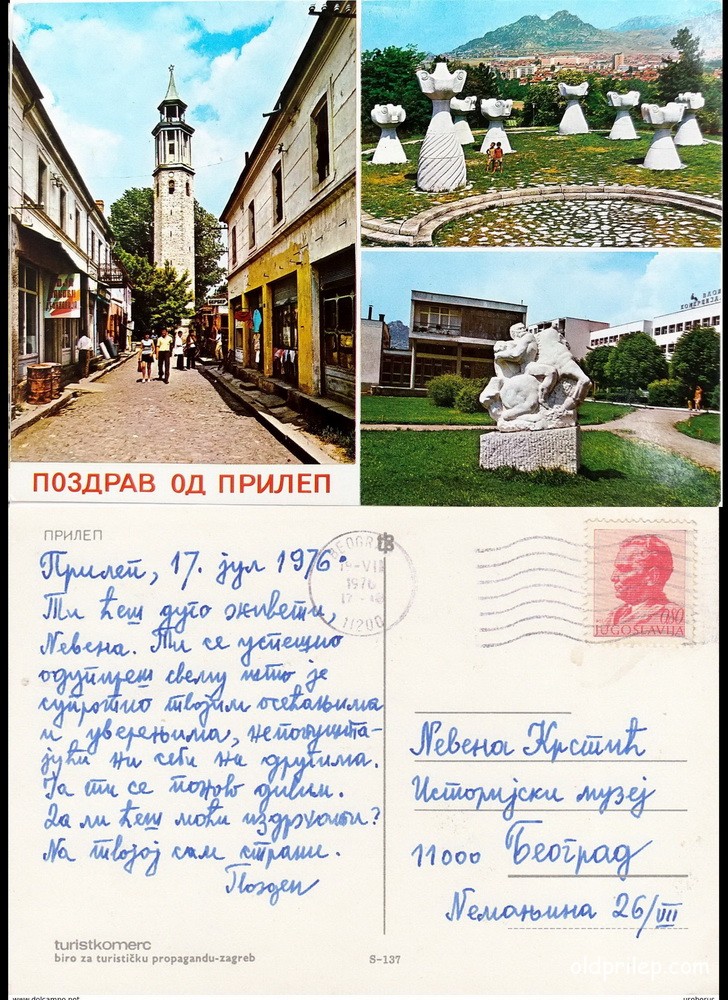 ПОЗДРАВ ОД ПРИЛЕП
ПРИЛЕП
Прилеп, 17. јул 1976.
Ти ћеш дуго живети,
Невена. Ти се успешно
одупиреш свему што је
супротно твојим осећањима
и уверењима, непопушта-
јући ни себи ни другима.
Ја ти се поново дивим.
Да ли ћеш моћи издржати?
На твојој сам страни.
Позден
BEOGRAD
1976
11200
0,80
JUGOSLAVIJA
Невена Крстић
Историјски музеј
11000 Београд
Немањина 26/VII
turistkomerc
biro za turističku propagandu-zagreb
S-137
oldprilep.com
www.delcampe.net